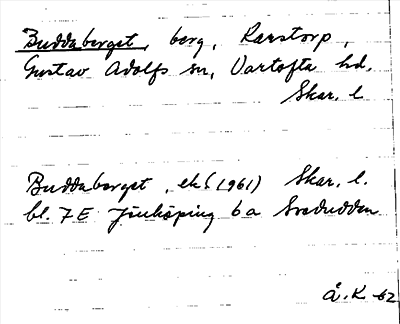 Buddaberget, berg, Karstorp,
Gustav Adolfs sn, Vartofta hd.
Skar. l
Buddaberget, ek (1961) Skar. l.
bl. 7E Jönköping 6a Svedudden
Å. K -62